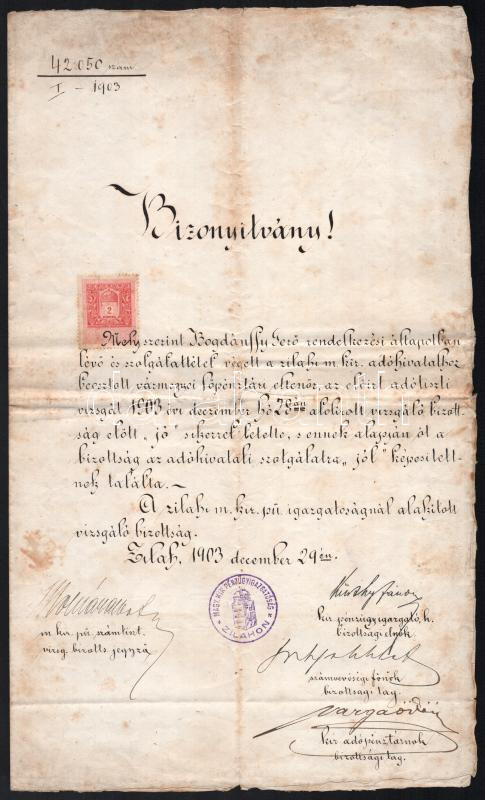 42.050 szám
I – 1903
Bizonyitvány!
2
Mely szerint Bogdánffy Gerő rendelkezési állapotban
lévő és szolgálattétel végett a zilahi m. kir. adóhivatalhoz
beosztott vármegyei főpénztári ellenőr, az előirt adótiszti
vizsgát 1903 évi december hó 28án alólirott vizsgáló bizott-
ság előtt „jó" sikerrel letette, s ennek alapján őt a
bizottság az adóhivatali szolgálatra „jól" képesitett-
nek találta. –
A zilahi m. kir. pü. igazgatóságnál alakitott
vizsgáló bizottság.
Zilah, 1903 december 29én.
MAGY. KIR. PÉNZÜGYIGAZGATÓSÁG
ZILAHON
m. kir. pü. számtiszt
vizsg. bizotts. jegyző
kir. pénzügyigazgató h.
bizottsági elnök
számvevőségi főnök
bizottsági tag.
Varga Ödön
kir. adópénztárnok
bizottsági tag.